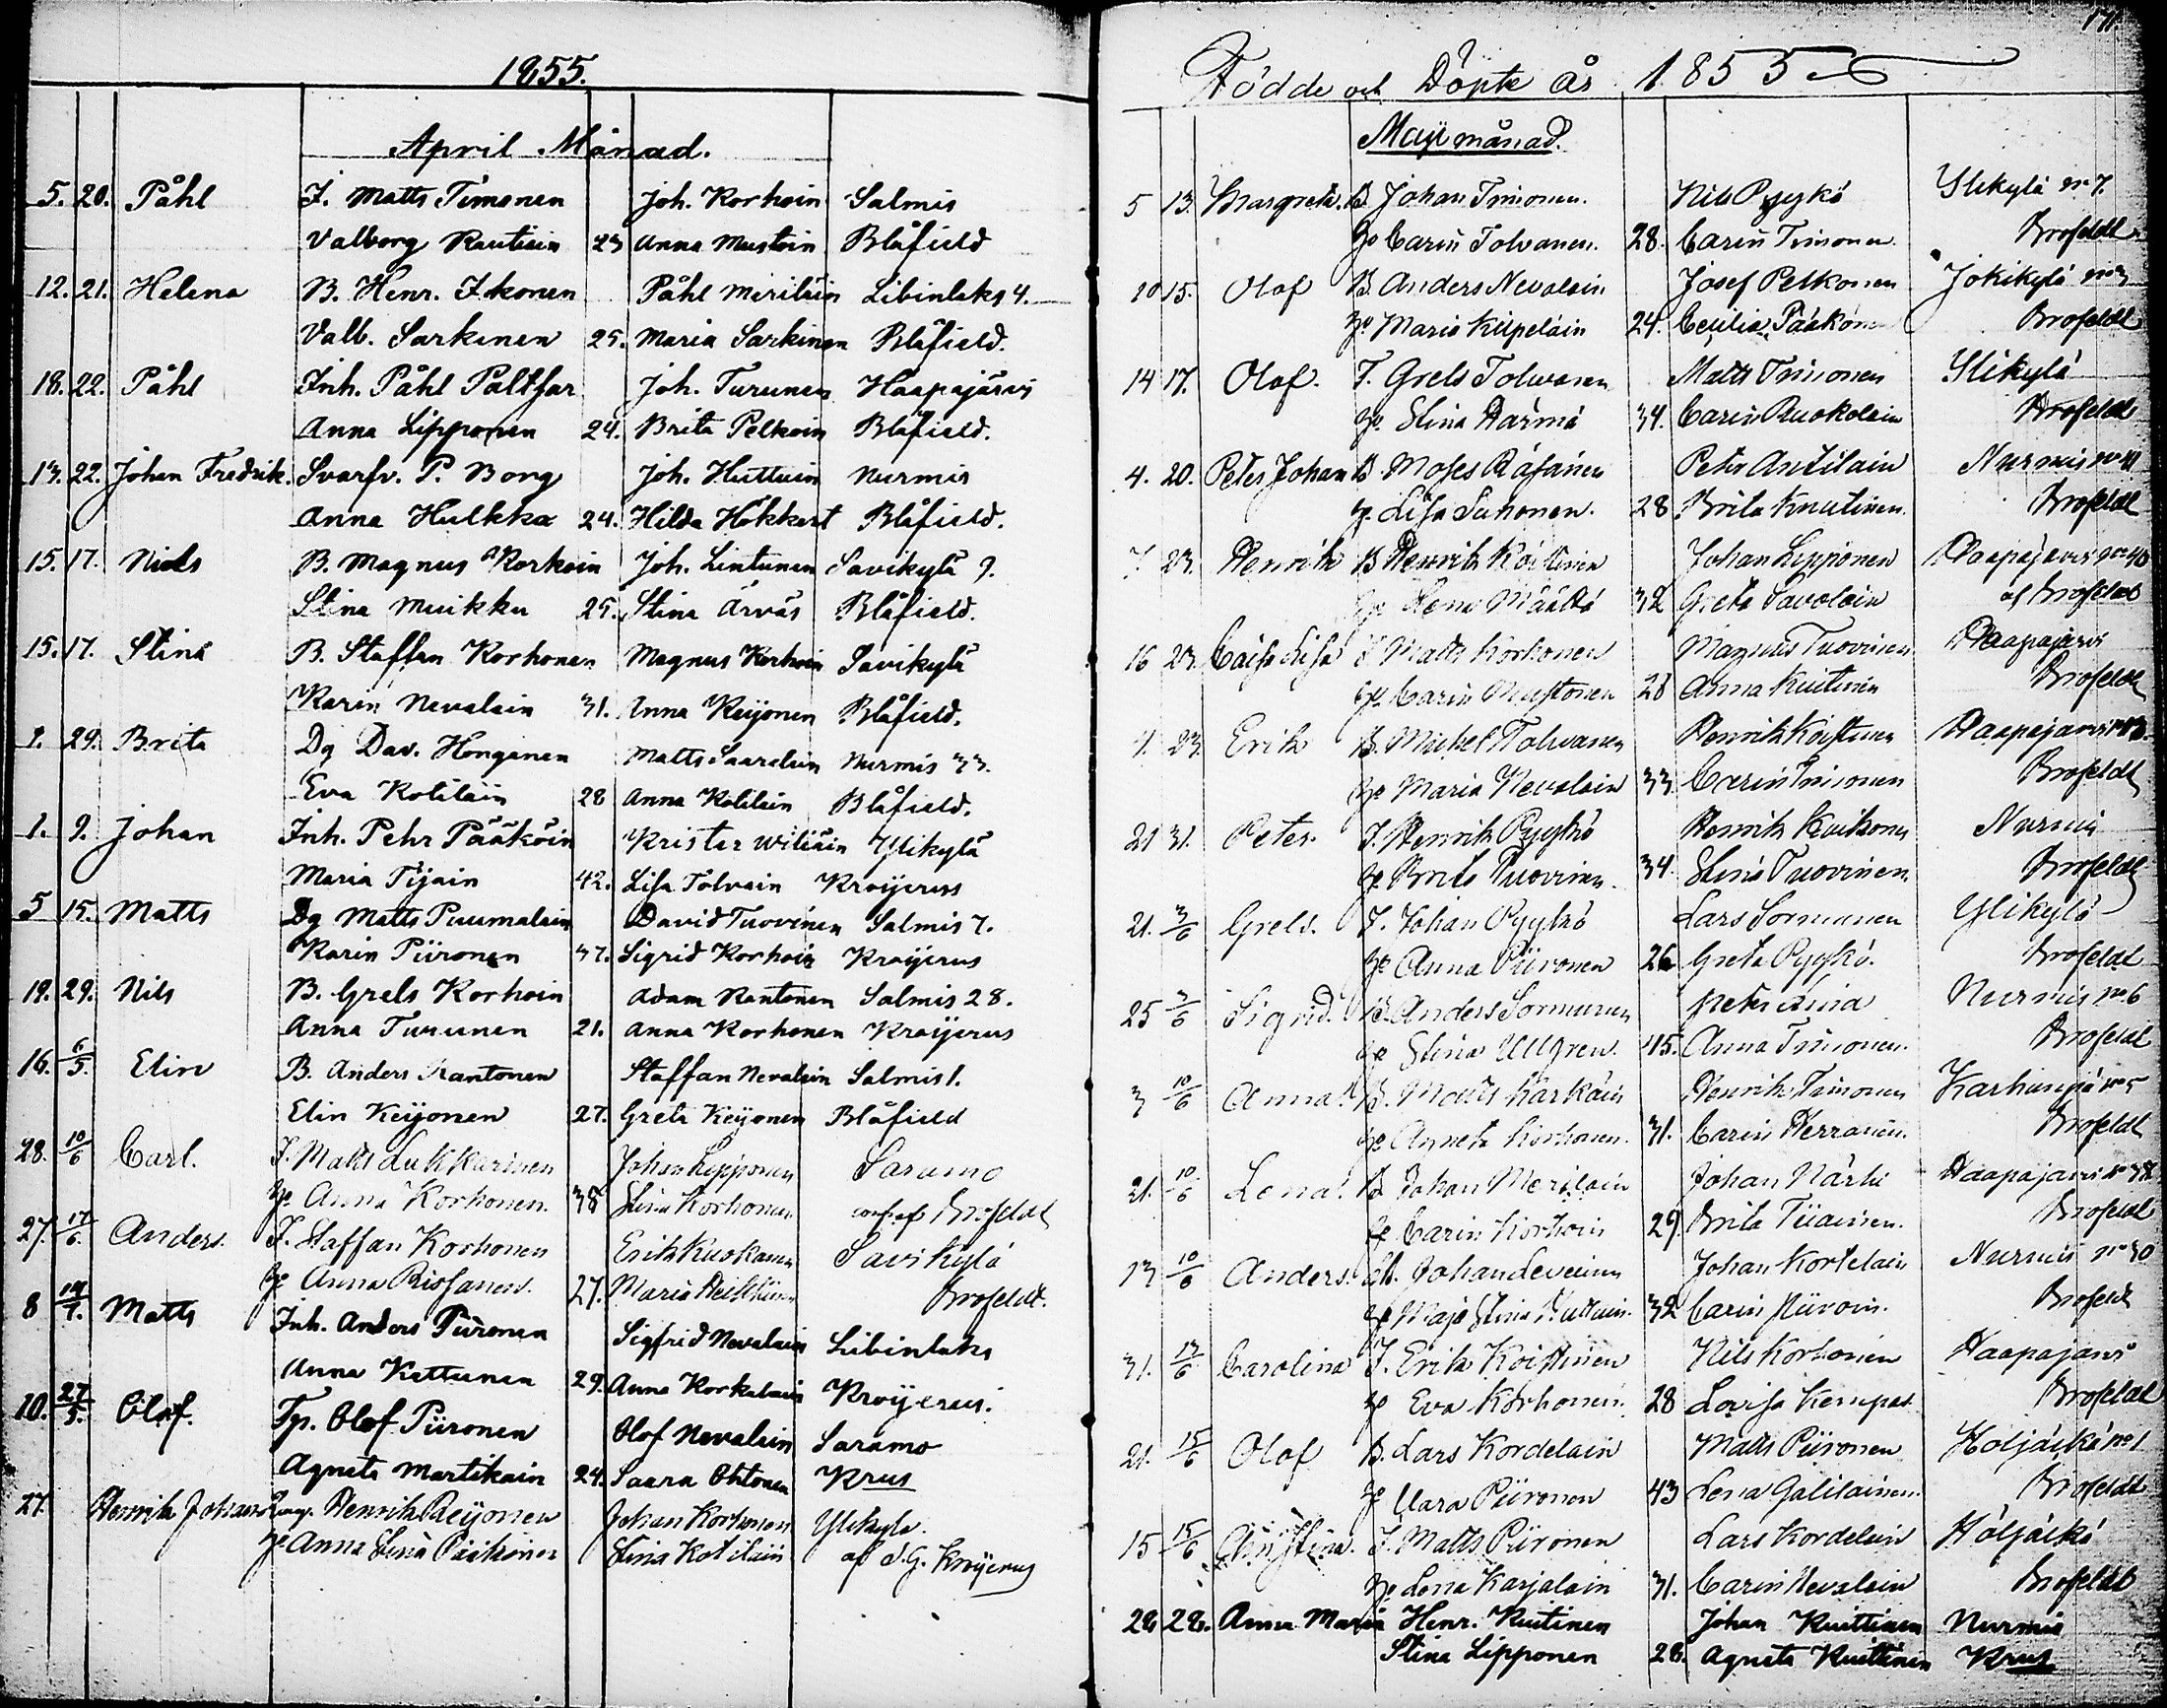 1855.
April Månad.
5. 20. Påhl I. Matts Timonen Joh. Korhoin Salmis
Valborg Rautiain 23 Anna Mustoin Blåfield
12. 21. Helena B. Henr. Ikonen Påhl Meriläin Libinlaks 4.
Valb. Sarkinen 25. Maria Sarkinen Blåfield.
18. 22. Påhl Inh. Påhl Paltsar Joh. Turunen Haapajärvi
Anna Lipponen 24. Brita Pelkoin Blåfield.
13. 22. Johan Fredrik. Svarfv. P. Borg Joh. Huttuin Nurmis
Anna Hulkka 24. Hilda Hökkert Blåfield.
15. 17. Niels B. Magnus Korhoin Joh. Lintunen Savikylä 9.
Stina Muikku 25. Stina Ärväs Blåfield.
15. 17. Stina B. Staffan Korhonen Magnus Korhoin Savikylä
Karin Nevalain 31. Anna Keijonen Blåfield.
1. 29. Brita Dg Dav. Honganen Matts Saarelain Nurmis 33.
Eva Kotilain 28 Anna Kotilain Blåfield.
1. 9. Johan Inh. Pehr Pääköin Krister Wiliäin Ylikylä
Maria Tijain 42. Lisa Tolvain Kroijerus
5 15. Matts Dg Matts Puumalain David Tuovinen Salmis 7.
Karin Piironen 37. Sigrid Korhoin Kroijerus
19. 29. Nils B. Grels Korhoin Adam Rantonen Salmis 28.
Anna Turunen 21. Anna Korhonen Kroijerus
16. 6/5. Elin B. Anders Rantonen Staffan Nevalain Salmis 1.
Elin Keijonen 27. Greta Keijonen Blåfield
28. 10/6 Carl. I. Matts Lukkarinen Johan Lipponen Saramo
Anna Korhonen. 38 Stina Korhonen af Brofeldt
27. 17/6. Anders. I. Staffan Korhonen Erik Ruokanen Savikylä
Anna Rissanen. 27. Maria Heiskinen Brofeldt.
8 14/7. Matts Inh. Anders Piironen Sigfrid Nevalain Libinlaks
Anna Kettunen 29. Anna Korkalain Kroijerus.
10. 27/5. Olof. Tp. Olof Piironen Olof Nevalain Saramo
Agneta Martikain 24. Saara Ohtonen Krus
27. Henrik Johan Henrik Keijonen Johan Korhonen Ylikylä.
Anna Stina Pääkönen Stina Kotilain af S. G. Kroijerus
171
Födde och Döpte år 1855
Maji månad.
5 13. Margreta. B. Johan Timonen. Nils Pyykö Ylikylä no 7.
Carin Tolvanen. 28. Carin Timonen. Brofeldt
10 15. Olof B. Anders Nevalain Josef Pelkonen Jokikylä
Maria Kilpeläin 24. Cecilia Pääkönen Brofeldt
14 17. Olof. I. Grels Tolwanen Matts Timonen Ylikylä
Stina Härmä 34. Carin Ruokolain Brofeldt
4. 20. Peter Johan B. Moses Räsänen Peter Antilain Nurmis
Lisa Suhonen. 28 Brita Knutinen. Brofeldt
7 23. Henrik B Henrik Köistinen Johan Lipponen Haapajärvi no 40
Lena Määttä 32 Greta Savolain af Brofeldt
16 23. Caisa Lisa I Matts Korhonen Magnus Tuovinen Haapajärvi
Carin Mustonen 28 Anna Kuitinen Brofeldt
4. 23. Erik B. Michel Tolwanen Henrik Köistinen Haapajärvi
Maria Nevalain 33 Carin Timonen Brofeldt
21 31. Peter. I. Henrik Pyykö Henrik Karhonen Nurmis
Brita Tuovinen. 34. Stina Tuovinen. Brofeldt
21. 3/6 Grels. I. Johan Pyykö Lars Sormunen Ylikylä
Anna Piironen 26 Greta Pyykö. Brofeldt
25 3/6 Sigrid. B. Anders Sormunen Peter Nurmis no 6
Stina Ullgren. 45. Anna Timonen. Brofeldt
3 10/6 Anna. B. Matts Kärkäin Henrik Timonen Karhunpä no 5
Agneta Korhonen. 31. Carin Herranen. Brofeldt
21. 10/6 Lena. B Johan Meriläin Johan Närhi Haapajärvi no 38
Carin Korhoin 29. Brita Tiiainen. Brofeldt
13 10/6 Anders. Johan Leveinen Johan Kortelain Nurmis no 30
Maja Stina Huttuin. 32 Carin Piiroin. Brofeldt
31. 17/6. Carolina I. Erik Köistinen Nils Korhonen Haapajärvi
Eva Korhonen. 28 Lovisa Kempas. Brofeldt
21. 15/6 Olof B. Lars Kordelain Matts Piironen Höljäkä no 1
Clara Piironen 43 Lena Galilainen. Brofeldt
15 15/6 Christina. I. Matts Piironen Lars Kordelain Höljäkä
Lena Karjalain 31. Carin Nevalain Brofeldt
28 28. Anna Maria Henr. Kuitinen Johan Kuittinen Nurmis
Stina Lipponen 28. Agneta Kuittinen Krus